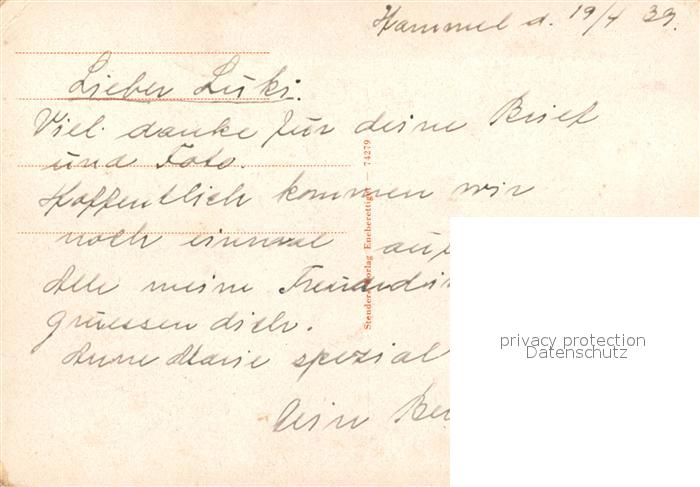 Hammel d. 19/4 39.
Lieber Luki.
Viel danke für deine Brief
und Foto.
Hoffentlich kommen wir
noch einmal auf
Alle meine Freundin
gruessen dich.
Anne Marie spezial
Dein
Stenders Forlag Eneberettiget — 74279
privacy protection
Datenschutz